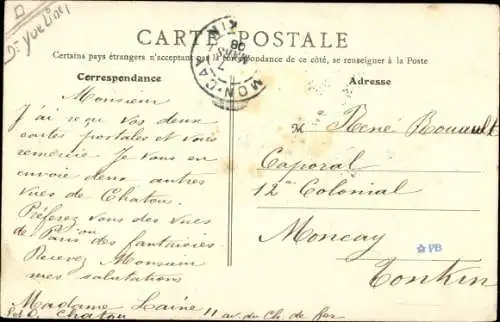 Dt Yvelines
CARTE POSTALE
Certains pays étrangers n'acceptant pas la correspondance de ce côté, se renseigner à la Poste
MON-CAY
7
MARS
08
Correspondance
Adresse
Monsieur
J'ai reçu vos deux
cartes postales et vous
remercie. Je vous en
envoie deux autres
vues de Chatou.
Préferez vous des vues
de Paris ou des fantaisies.
Recevez Monsieur
mes salutations
Madame Lainé 11 av. du Ch. de fer
Chatou
M René Bouault
Caporal
12e Colonial
Moncay
Tonkin
☆PB